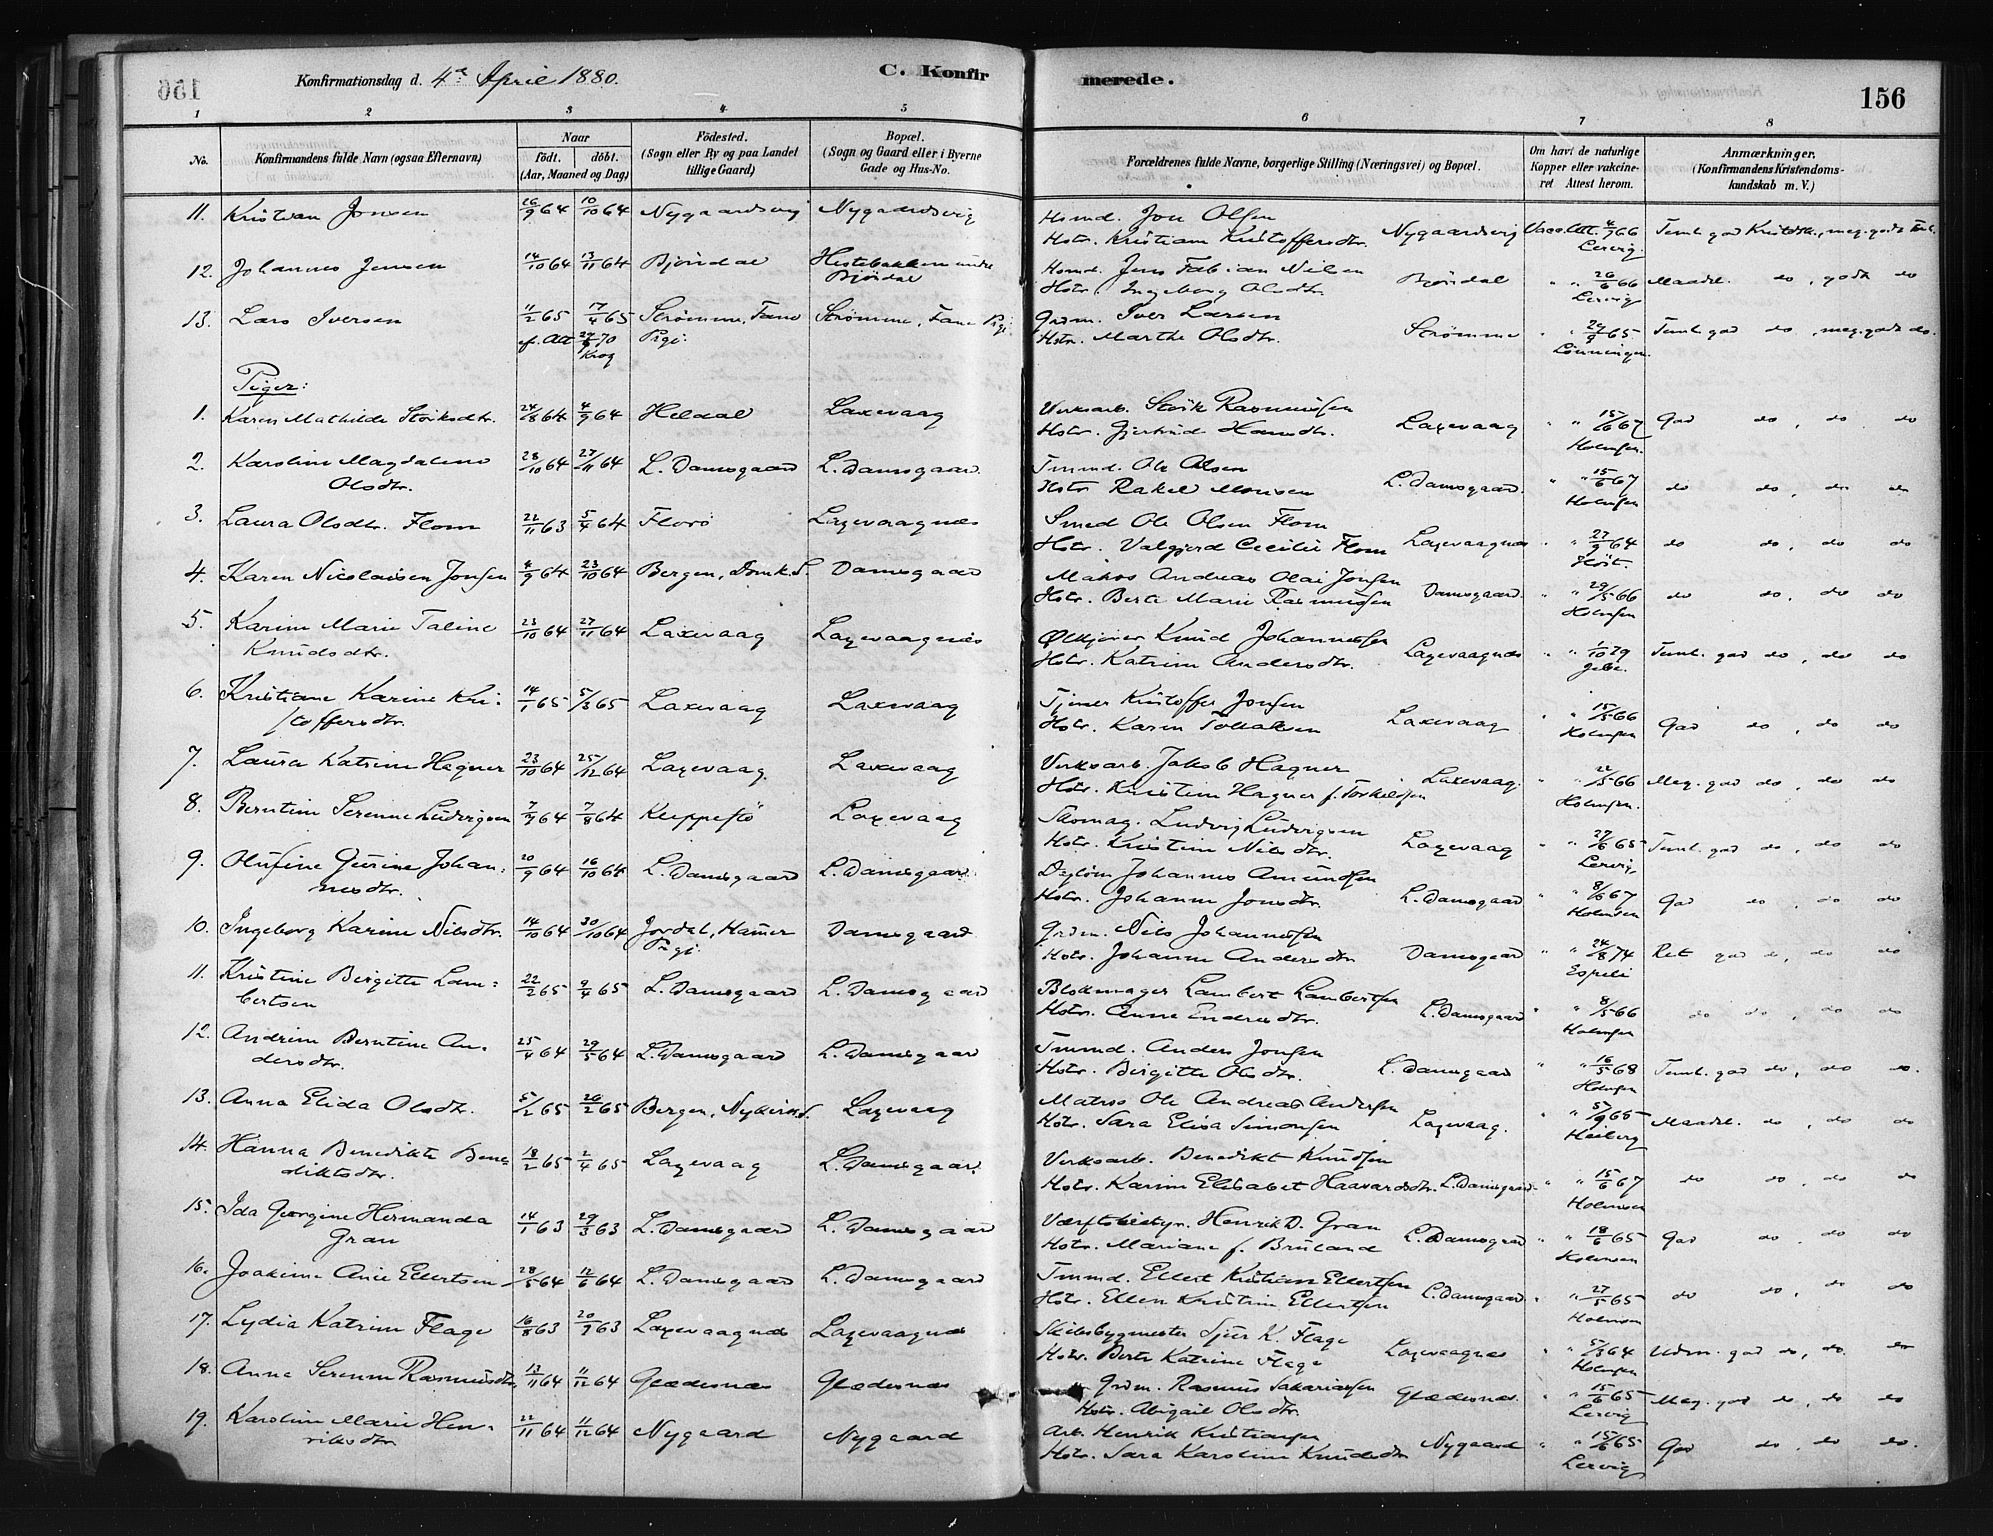 Konfirmationsdag d. 4de April 1880.
C. Konfir merede. 156
1 2 3 4 5 6 7 8
No. Konfirmandens fulde Navn (ogsaa Efternavn) Naar født. døbt. (Aar, Maaned og Dag) Fødested. (Sogn eller By og paa Landet tillige Gaard) Bopæl. (Sogn og Gaard eller i Byerne Gade og Hus-No. Forældrenes fulde Navne, borgerlige Stilling (Næringsvei) og Bopæl. Om havt de naturlige Kopper eller vakcineret Attest herom. Anmærkninger. (Konfirmandens Kristendomskundskab m. V.)
11. Kristian Jonsen 26/9 64 10/10 64 Nygaardsvig Nygaardsvig Husmd. Jon Olsen Nygaardsvig Vacc. Att. 4/7 66 Teml. god Kristdk., meg. godt Forh.
Hstr. Kristiane Kristoffersdtr. Lervig
12. Johannes Jensen 14/10 64 13/11 64 Bjøndal Hestebakken under Bjøndal Husmd. Jens Fabian Nilsen Bjøndal " " 26/6 66 Maadel. do, godt do
Hstr. Ingeborg Olsdtr. Lervig
13. Lars Iversen 11/2 65 17/4 65 Strømme, Fane Strømme, Fane Pgj. Grdm. Iver Larsen Strømme " " 29/9 65 Teml. god do, meg. godt do.
ef. Att 29/9 70 Krog Prgj. Hstr. Marthe Olsdtr. Lønningen
Piger:
1. Karen Mathilde Størksdtr. 24/8 64 4/9 64 Heldal Laxevaag Verksarb. Størk Rasmussen Laxevaag " " 15/6 67 God do, do do
Hstr. Gjertrud Hansdtr. Holmsen
2. Karoline Magdalene 28/10 64 27/11 64 L. Damsgaard L. Damsgaard Tmmd. Ole Olsen L. Damsgaard. " " 15/6 67 do do, do do
Olsdtr. Hstr. Rakel Monsen Holmsen
3. Laura Olsdtr. Flom 22/11 63 5/4 64 Florø Laxevaagnæs Smed Ole Olsen Flom Laxevaagnæs " " 27/9 64 do do, do do
Hstr. Valgjerd Cecilie Flom Høst
4. Karen Nicolaisen Jonsen 4/9 64 23/10 64 Bergen, Domk. S. Damsgaard Matros Andreas Olai Jonsen Damsgaard. " " 29/5 66 do do, do do
Hstr. Berte Marie Rasmussen Holmsen
5. Karine Marie Taline 23/10 64 27/11 64 Laxevaag Laxevaagnæs Ølkjører Knud Johannessen Laxevaagnæs " " 1/10 79 Teml. god do, do do
Knudsdtr. Hstr. Katrine Andersdtr. Gjebe.
6. Kristiane Karine Kri- 14/1 65 5/3 65 Laxevaag Laxevaag Tjener Kristoffer Jonsen Laxevaag " " 15/5 66 God do, do do
stoffersdtr. Hstr. Karen Tollaksen Holmsen
7. Laura Katrine Hagner 23/10 64 25/12 64 Laxevaag Laxevaag Verksarb. Jakob Hagner Laxevaag. " " 66 Meg. god do, do do
Hstr. Kristine Hagner f. Torkildsen Holmsen.
8. Berntine Serenne Ludvigsen 7/7 64 7/8 64 Kleppestø Laxevaag Skomag. Ludvig Ludvigsen Laxevaag " " 27/6 65 Teml. god do, do do
Hstr. Kristine Nilsdtr. Lervig
9. Olufine Gurine Johan- 20/9 64 16/10 64 L. Damsgaard L. Damsgaard. Dagløn Johannes Amundsen L. Damsgaard " " 8/6 67 God do, do do
nesdtr. Hstr. Johanne Jonsdtr. Holmsen
10. Ingeborg Karine Nilsdtr. 14/10 64 30/10 64 Jordal, Hamer Prgj. Damsgaard Grdm. Nils Johannessen Damsgaard " " 24/8 74 Ret god do, do do
Hstr. Johanne Andersdtr Espeli
11. Kristine Birgitte Lam- 22/2 65 9/4 65 L. Damsgaard L. Damsgaard Blokmager Lambert Lambertsen L. Damsgaard " " 8/5 66 do do, do do
bertsen Hstr. Anne Endresdtr. Holmsen
12. Andrine Berntine An- 25/4 64 29/5 64 L. Damsgaard L. Damsgaard Tmmd. Anders Jonsen L. Damsgaard " " 16/5 68 Teml. god do, do do.
dersdtr. Hstr. Birgitte Olsdtr. Holmsen
13. Anna Elida Olsdtr. 5/2 65 26/2 65 Bergen, Nykirkes. Laxevaag Matros Ole Andreas Andersen Laxevaag. " " 5/9 65 Maadel. do, do do
Hstr. Sara Elisa Simonsen Heiberg
14. Hanna Benedikte Bene- 18/2 65 2/4 65 Laxevaag L. Damsgaard. Verksarb. Benedikt Knudsen L. Damsgaard " " 15/6 67 do do, do do
diktsdtr. Hstr. Karine Elisabet Haavardsdtr. Holmsen
15. Ida Georgine Hermanda 14/1 63 29/3 63 L. Damsgaard L. Damsgaard Værftsbestyr. Henrik D. Gran L. Damsgaard " " 18/6 65 God do, do do
Gran Hstr. Mariane f. Bruland Holmsen
16. Joakime Anie Ellertsen 28/5 64 12/6 64 L. Damsgaard L. Damsgaard Tmmd. Ellert Kristian Ellertsen L. Damsgaard " " 27/5 65 do do, do do
Hstr. Ellen Kristine Ellertsen Holmsen
17. Lydia Katrine Flage 16/8 63 20/9 63 Laxevaagnæs Laxevaagnæs Skibsbygmester Sjur K. Flage Laxevaagnæs " " 5/3 64 Udm. god do, do. do
Hstr. Berte Katrine Flage Holmsen
18. Anna Serenne Rasmusdtr. 13/11 64 11/12 64 Glædesnæs Glædesnæs Grdm. Rasmus Sakariassen Glædesnæs. " " 15/6 65 Meg. god do, do do
Hstr. Abigail Olsdtr. Lervig
19. Karoline Marie Hen- 22/11 64 11/12 64 Nygaard Nygaard Arb. Henrik Kristiansen Nygaard " " 15/6 65 God do, do do.
riksdtr Hstr. Sara Karoline Knudsdtr Lervig